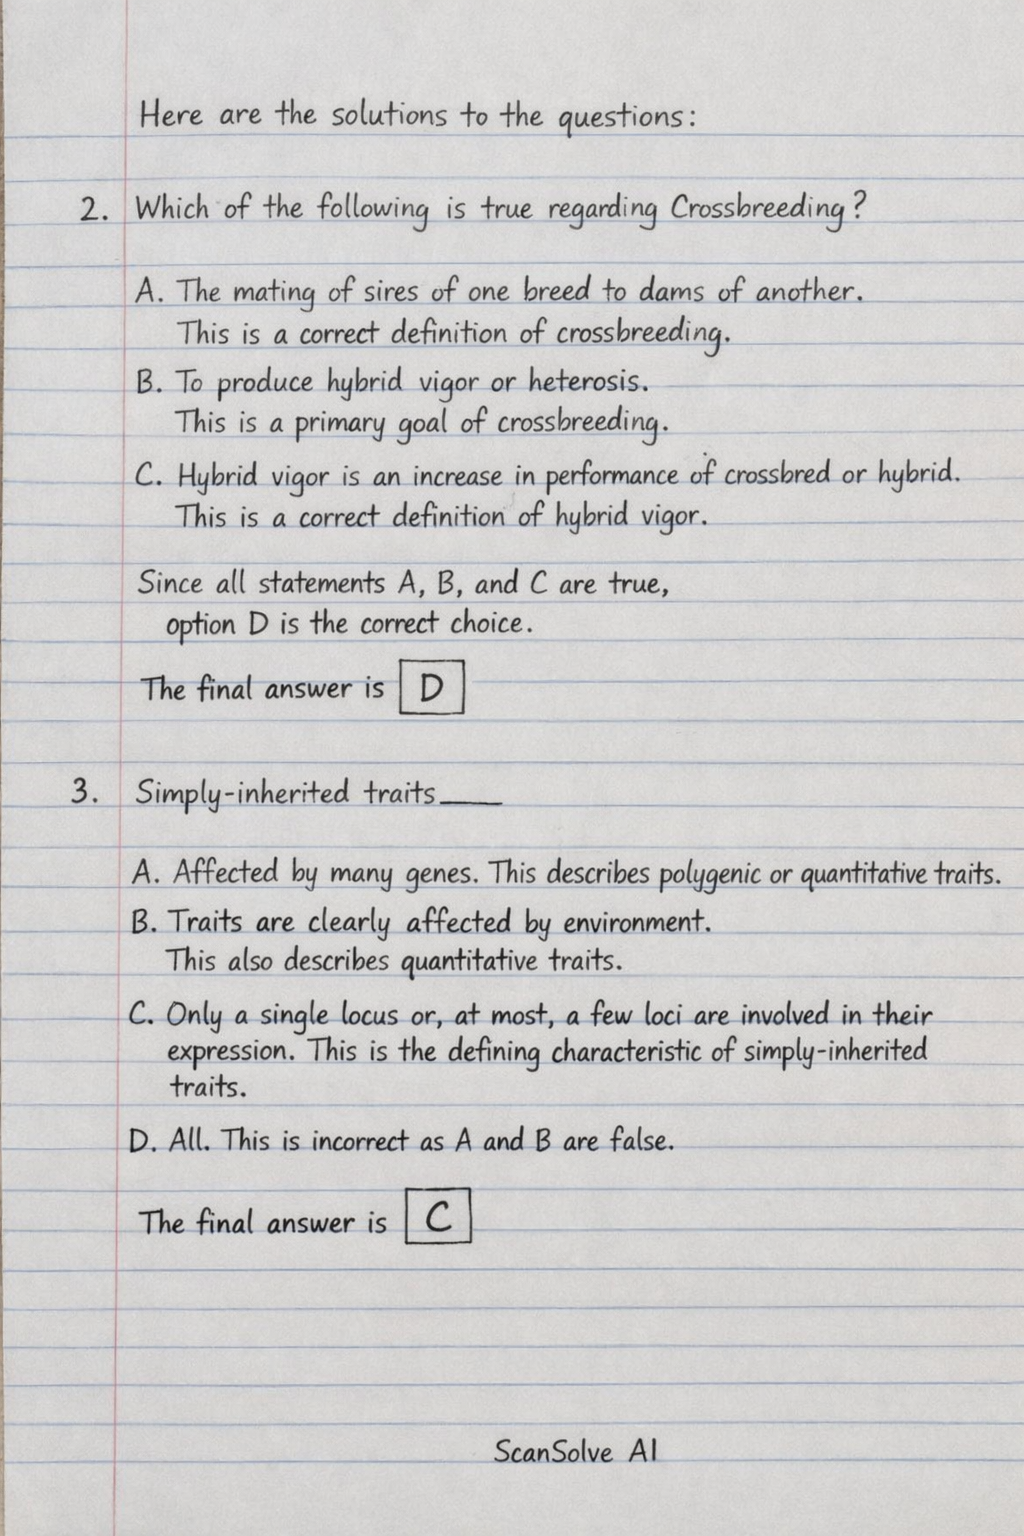 Here are the solutions to the questions:
2. Which of the following is true regarding Crossbreeding?
A. The mating of sires of one breed to dams of another.
This is a correct definition of crossbreeding.
B. To produce hybrid vigor or heterosis.
This is a primary goal of crossbreeding.
C. Hybrid vigor is an increase in performance of crossbred or hybrid.
This is a correct definition of hybrid vigor.
Since all statements A, B, and C are true,
option D is the correct choice.
The final answer is D
3. Simply-inherited traits____
A. Affected by many genes. This describes polygenic or quantitative traits.
B. Traits are clearly affected by environment.
This also describes quantitative traits.
C. Only a single locus or, at most, a few loci are involved in their
expression. This is the defining characteristic of simply-inherited
traits.
D. All. This is incorrect as A and B are false.
The final answer is C
ScanSolve AI